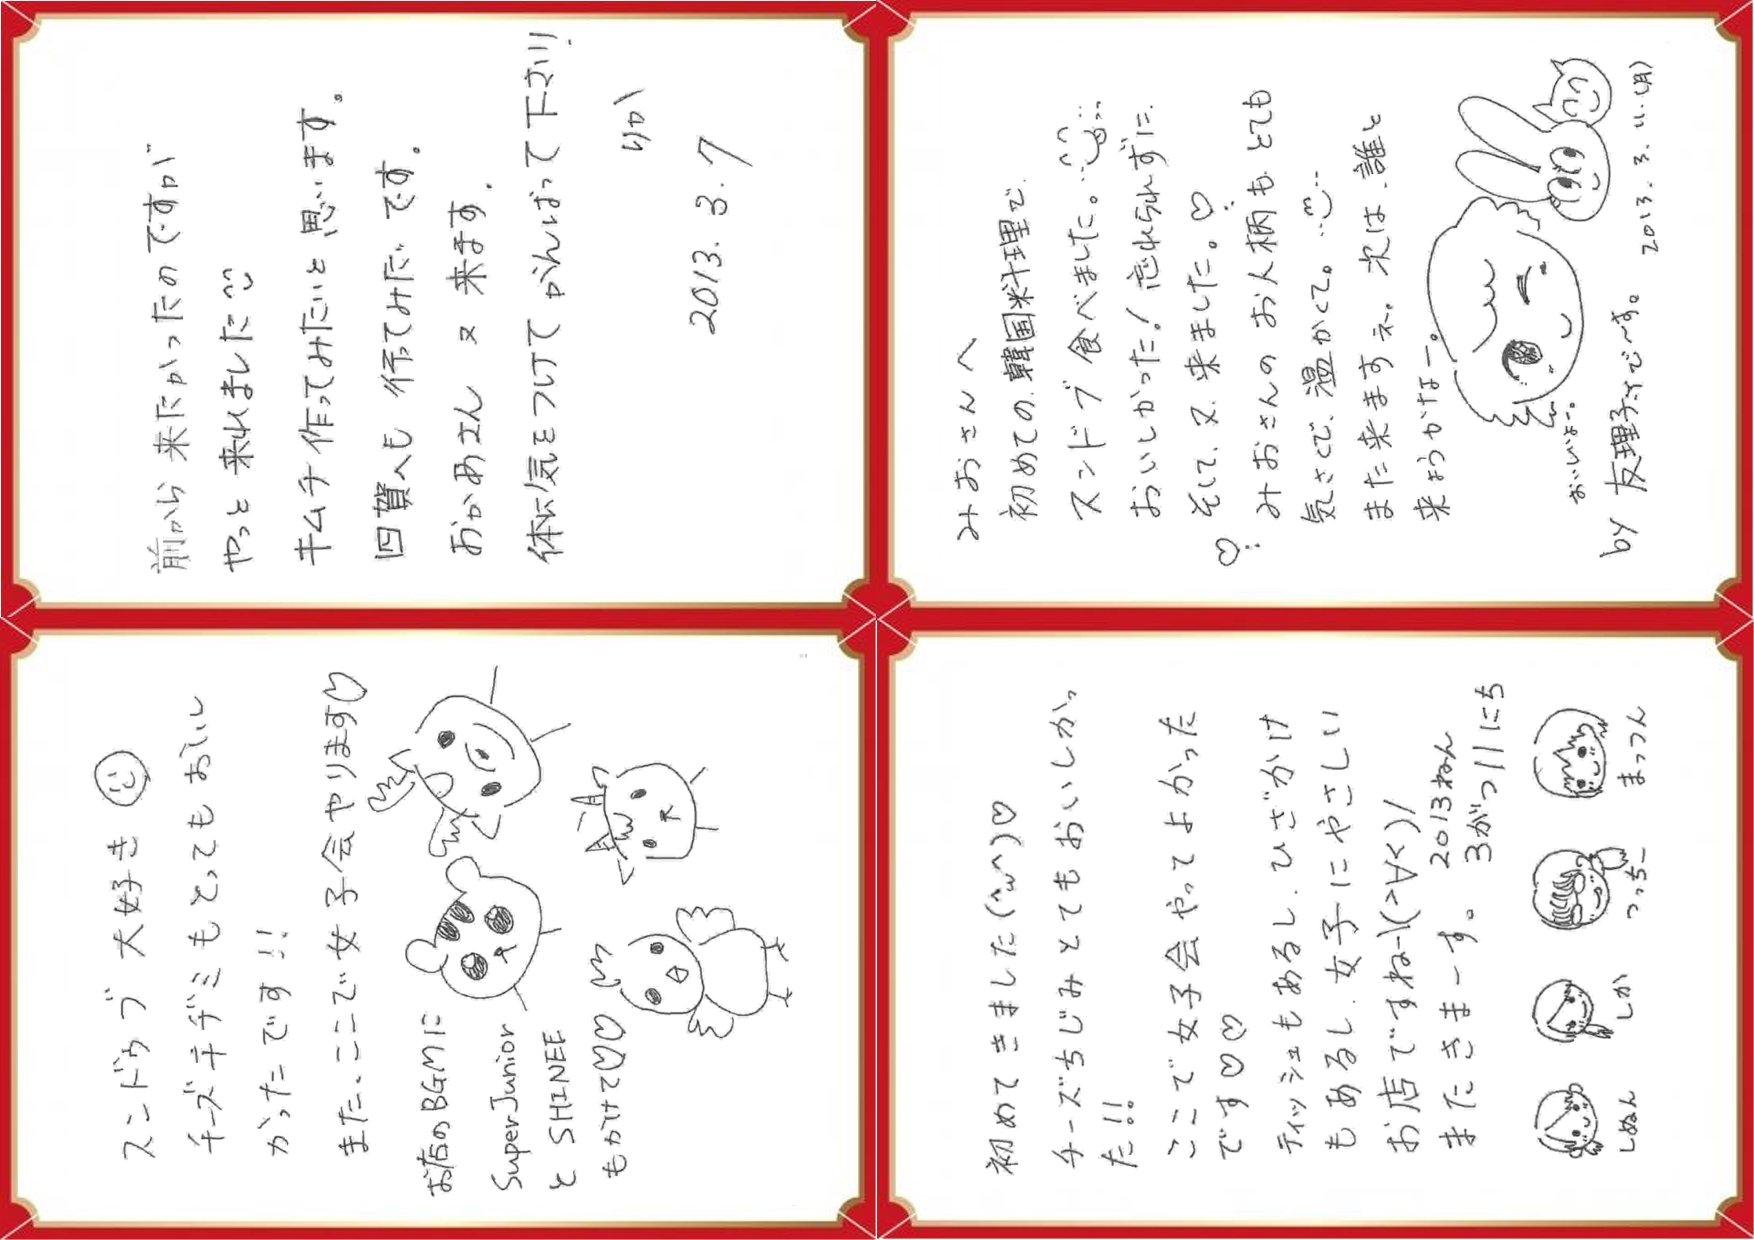 前から来たかったのですが
やっと来れましたᵔᵕᵔ
キムチ作ってみたいと思います。
四賀へも行ってみたいです。
おかあさん 又 来ます.
体に気をつけて がんばって下さい.
りか
2013.3.7
みおさんへ
初めての.韓国料理で.
スンドブ食べました。
おいしかった!忘れられずに.
そして.又.来ました。♡
♡みおさんの お人柄も とても
気さくで.温かくて。
また来ますネ。次は.誰と
来ようかなー。
おいしいよー。
by 友理子でーす。
2013.3.11.(月)
スンドゥブ 大好き
チーズチヂミもとってもおいし
かったです!!
また、ここで女子会やります♡
お店のBGMに
Super Junior
と SHINEE
もかけて♡♡
初めてきました(^ω^)♡
チーズちじみとてもおいしかっ
た!!
ここで女子会やってよかった
です♡♡♡
ティッシュもあるし.ひざかけ
もあるし.女子にやさしい
お店ですねー!(>∀<)/
またきまーす。
2013ねん
3がつ11にち
しぬん
しか
つっちー
まっつん